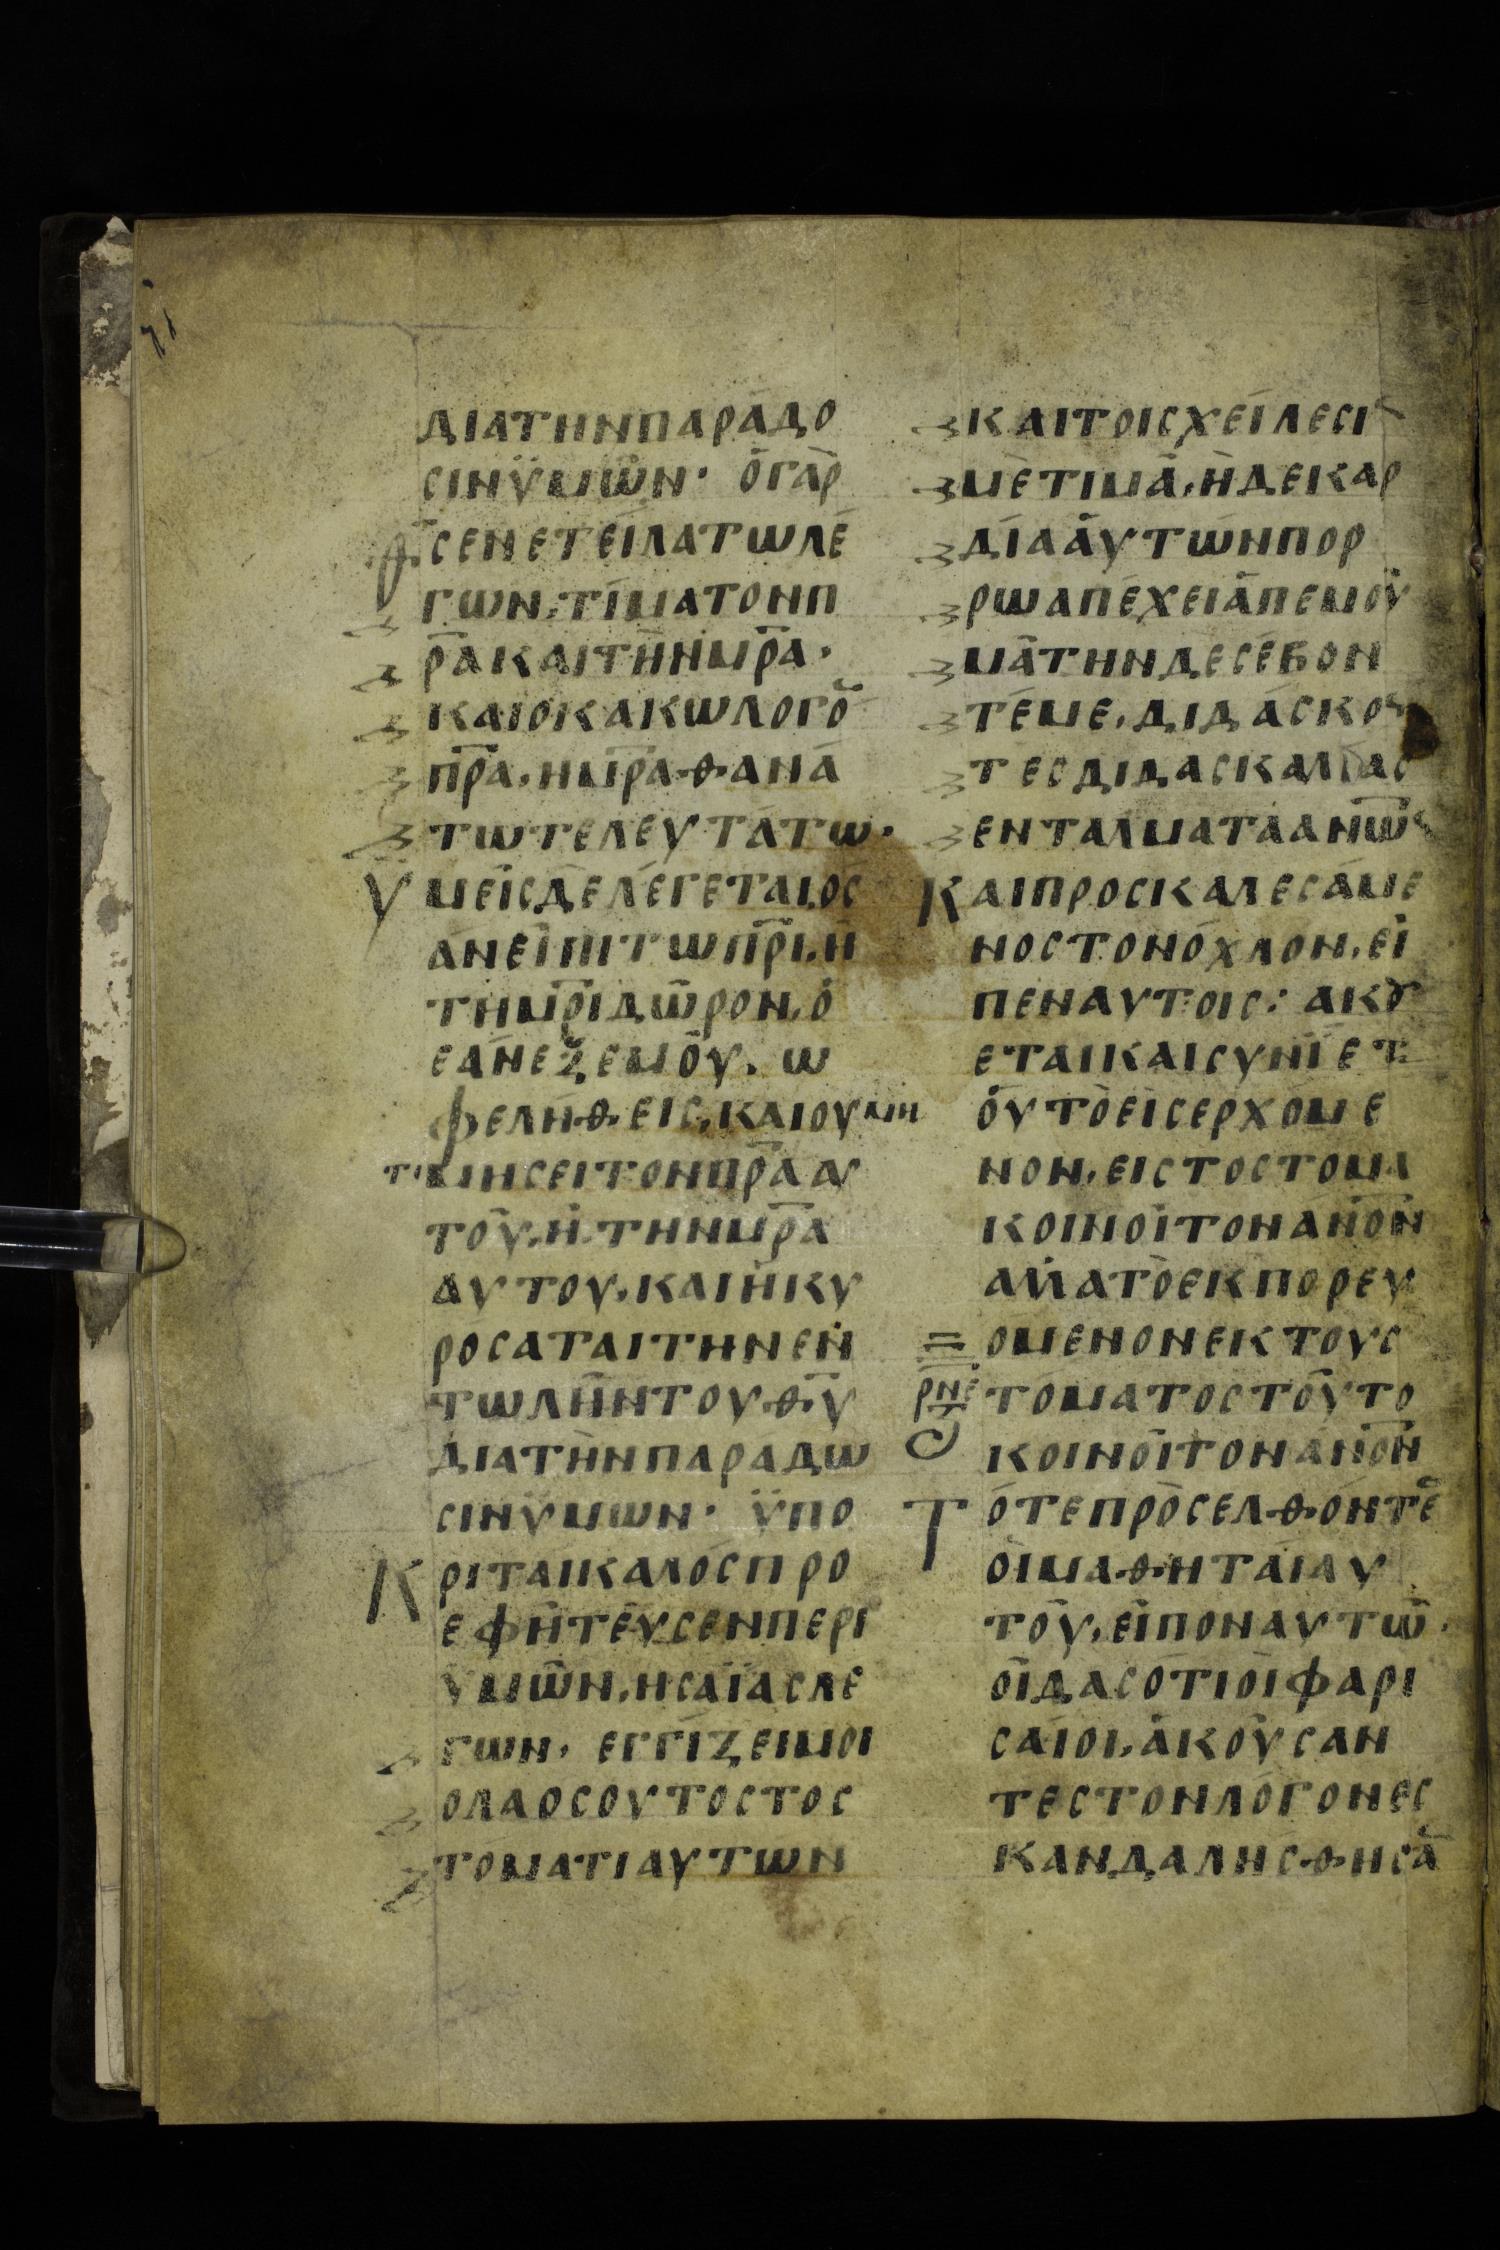 ΔΙΑΤΗΝΠΑΡΆΔΟ
ϹΙΝΫΜΩ͂Ν· ὉΓᾺΡ
Θ̅Ϲ ΕΝΕΤΕΊΛΑΤΩΛΈ
ΓΩΝ,ΤΊΜΑΤΟΝΠ
Ρ̅ΑΚΑΙΤῊΝΜΡ̅Α·
ΚΑΙΟΚΑΚΩΛΟΓΟ̅
Π̅Ρ̅Α,ΗΜΡ̅ΑΘΑΝΆ
ΤΩΤΕΛΕΥΤΆΤΩ·
ΫΜΕΙ͂ϹΔῈΛΈΓΕΤΑΙ,ΟϹ
ΆΝΕΊΠΙΤΩΠ̅Ρ̅Ι,Ἢ
ΤΗΜΡ̅ΙΔΩ͂ΡΟΝ,Ὁ
ΕΆΝΕΞΕΜΟΥ͂, Ω
ΦΕΛΗΘΕΙϹ,ΚΑΙΟΥΜΗ
ΤΙΜΗϹΕΙΤΟΝΠΡ̅ΑΑΥ
ΤΟΥ͂,Ἢ,ΤΗΝΜΡ̅Α
ΑΥΤΟΥ,ΚΑΙΗΚΥ
ΡΟϹΑΤΑΙΤΗΝΕΝ
ΤΩΛΗΝΤΟΥΘ̅Υ̅
ΔΙΑΤῊΝΠΑΡΑΔΩ
ϹΙΝΫΜΩΝ· ΫΠΟ
ΚΡΙΤΑΊΚΑΛΟϹΠΡΟ
ΕΦΗΤΕΥϹΕΝΠΕΡΙ
ΫΜΩ͂Ν,ΗϹΑΪΑϹΛΕ
ΓΩΝ, ΕΓΓΊΖΕΙΜΟΙ
ΟΛΑΟϹΟΥΤΟϹΤΟϹ
ΤΌΜΑΤΙΑΥΤΩΝ
ΚΑΙΤΟΙϹΧΕΊΛΕϹΙ
ΜῈΤΙΜΑ͂,ἩΔΕΚΑΡ
ΔΊΑΑΥΤΩ͂ΝΠΟΡ
ΡΩΑΠΈΧΕΙΑΠΕΜΟΥ͂
ΜΆΤΗΝΔΕϹΈΒΟΝ
ΤΈΜΕ,ΔΙΔΆϹΚΟΝ
ΤΕϹΔΙΔΑϹΚΑΛΊΑϹ
ΕΝΤΑΛΜΑΤΑΑΝ̅Ω̅Ν
ΚΑΙΠΡΟϹΚΑΛΕϹΆΜΕ
ΝΟϹΤΟΝΌΧΛΟΝ,ΕΙ͂
ΠΕΝΑΥΤΟΙϹ: ΑΚΟΥ
ΕΤΑΙΚΑΙϹΥΝΪΕΤ
ΟΥΤῸΕΙϹΕΡΧΌΜΕ
ΝΟΝ,ΕΙϹΤΟϹΤΟΜΑ
ΚΟΙΝΟΙ͂ΤΟΝΑΝ̅Ο̅Ν
ΑΛΛΑΤῸΕΚΠΟΡΕΥ
ΟΜΕΝΟΝΕΚΤΟΥϹ
Ρ̅Ν̅Ε̅ ΤΌΜΑΤΟϹΤΟΥ͂ΤΟ
ΚΟΙΝΟΙ͂ΤΟΝΑΝ̅Ο̅Ν
ΤΌΤΕΠΡΟϹΕΛΘΌΝΤΕϹ
ΟΙΜΑΘΗΤΑΙΑΥ
ΤΟΥ͂,ΕΙ͂ΠΟΝΑΥΤΩ͂·
ΟΙ͂ΔΑϹΟΤΙΟΙΦΑΡΙ
ϹΑΊΟΙ,ΑΚΟΎϹΑΝ
ΤΕϹΤΟΝΛΌΓΟΝΕϹ
ΚΑΝΔΑΛΉϹΘΗϹΑ̅